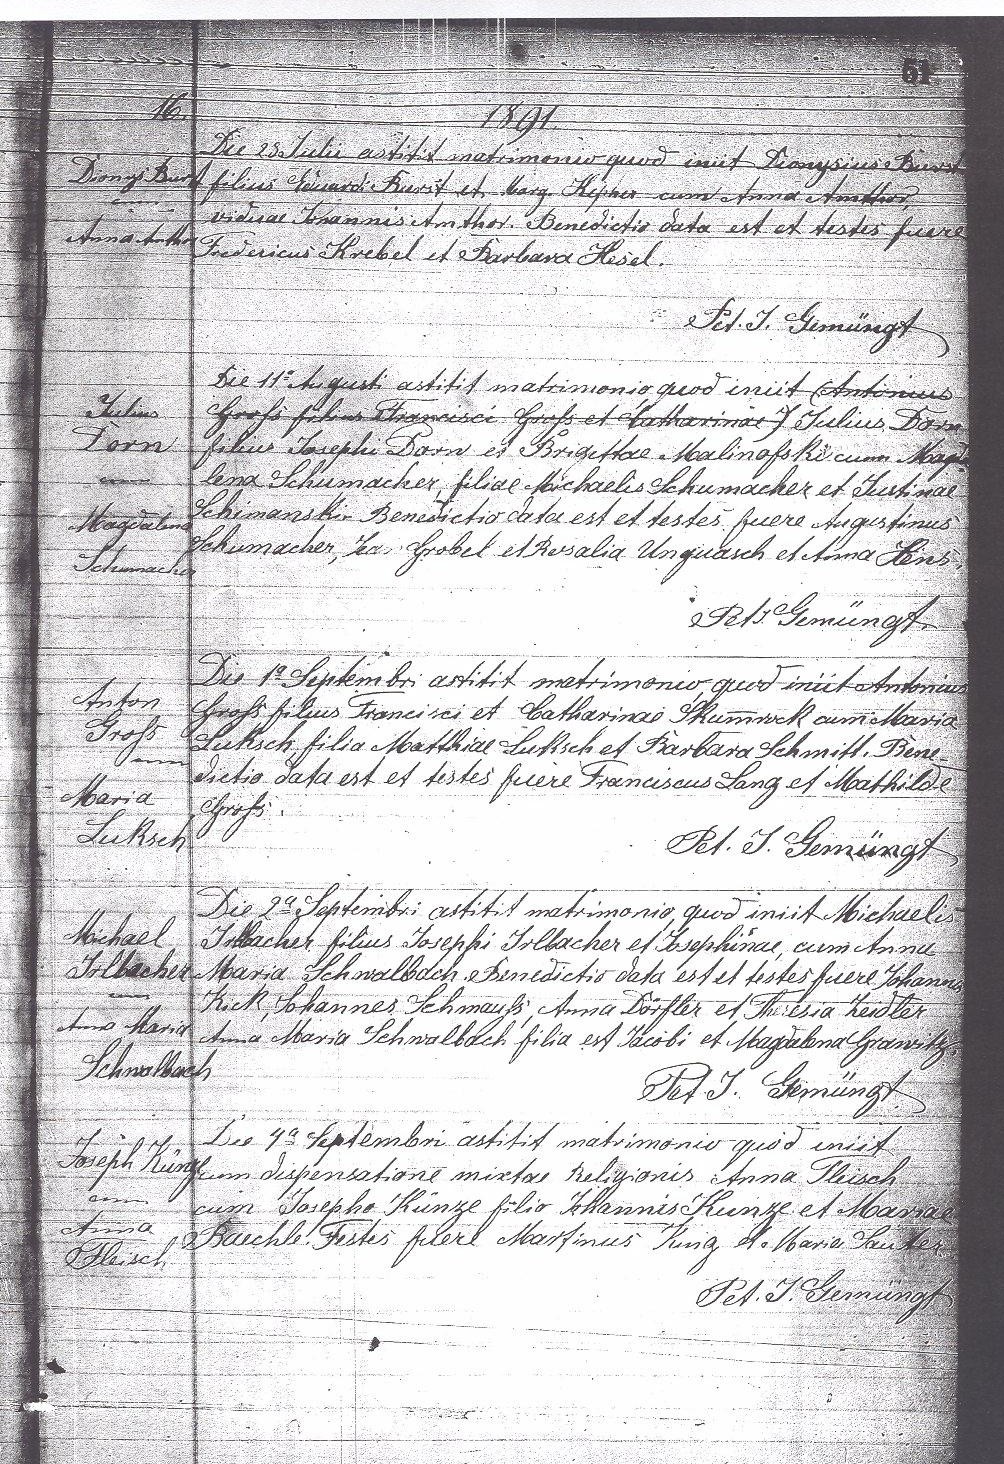 51
16.
1891.
Dionys Burst
cum
Anna Amthor
Die 28 Julii astitit matrimonio quod iniit Dionysius Burst
filius Eduardi Burst et Marg. Kepher cum Anna Amthor,
viduae Johannis Amthor. Benedictio data est et testes fuere
Fredericus Krebel et Barbara Hesel.
Pet. J. Gemüngt
Julius
Dorn
cum
Magdalena
Schumacher
Die 11ª Augusti astitit matrimonio quod iniit (Antonius
Groß filius Francisci Groß et Catharinae) Julius Dorn
filius Josephi Dorn et Brigittae Malinofski cum Magda
lena Schumacher, filiae Michaelis Schumacher et Justinae
Schimanski. Benedictio data est et testes fuere Augustinus
Schumacher, Grobel et Rosalia Unguasch et Anna Hens.
Pet. J. Gemüngt.
Anton
Groß
cum
Maria
Luksch
Die 1ª Septembri astitit matrimonio quod iniit Antonius
Groß filius Francisci et Catharinae Skumrock cum Maria
Luksch, filia Matthiae Luksch et Barbara Schmitt. Bene-
dictio data est et testes fuere Franciscus Lang et Mathilde
Groß.
Pet. J. Gemüngt
Michael
Irlbacher
cum
Anna Maria
Schwalbach
Die 2ª Septembri astitit matrimonio quod iniit Michaelis
Irlbacher filius Josephi Irlbacher et Josephinae, cum Anna
Maria Schwalbach. Benedictio data est et testes fuere Johannes
Kick, Johannes Schmauß, Anna Dörfler et Theresia Zeidler
Anna Maria Schwalbach filia est Jacobi et Magdalena Grawitz.
Pet J. Gemüngt
Joseph Künze
cum
Anna
Fleisch
Die 4ª Septembri astitit matrimonio quod iniit
cum dispensatione mixtae Religionis Anna Fleisch
cum Josepho Künze filio Johannis Kunze et Mariae
Baechle. Testes fuere Martinus Kung et Maria Sauter
Pet. J. Gemüngt